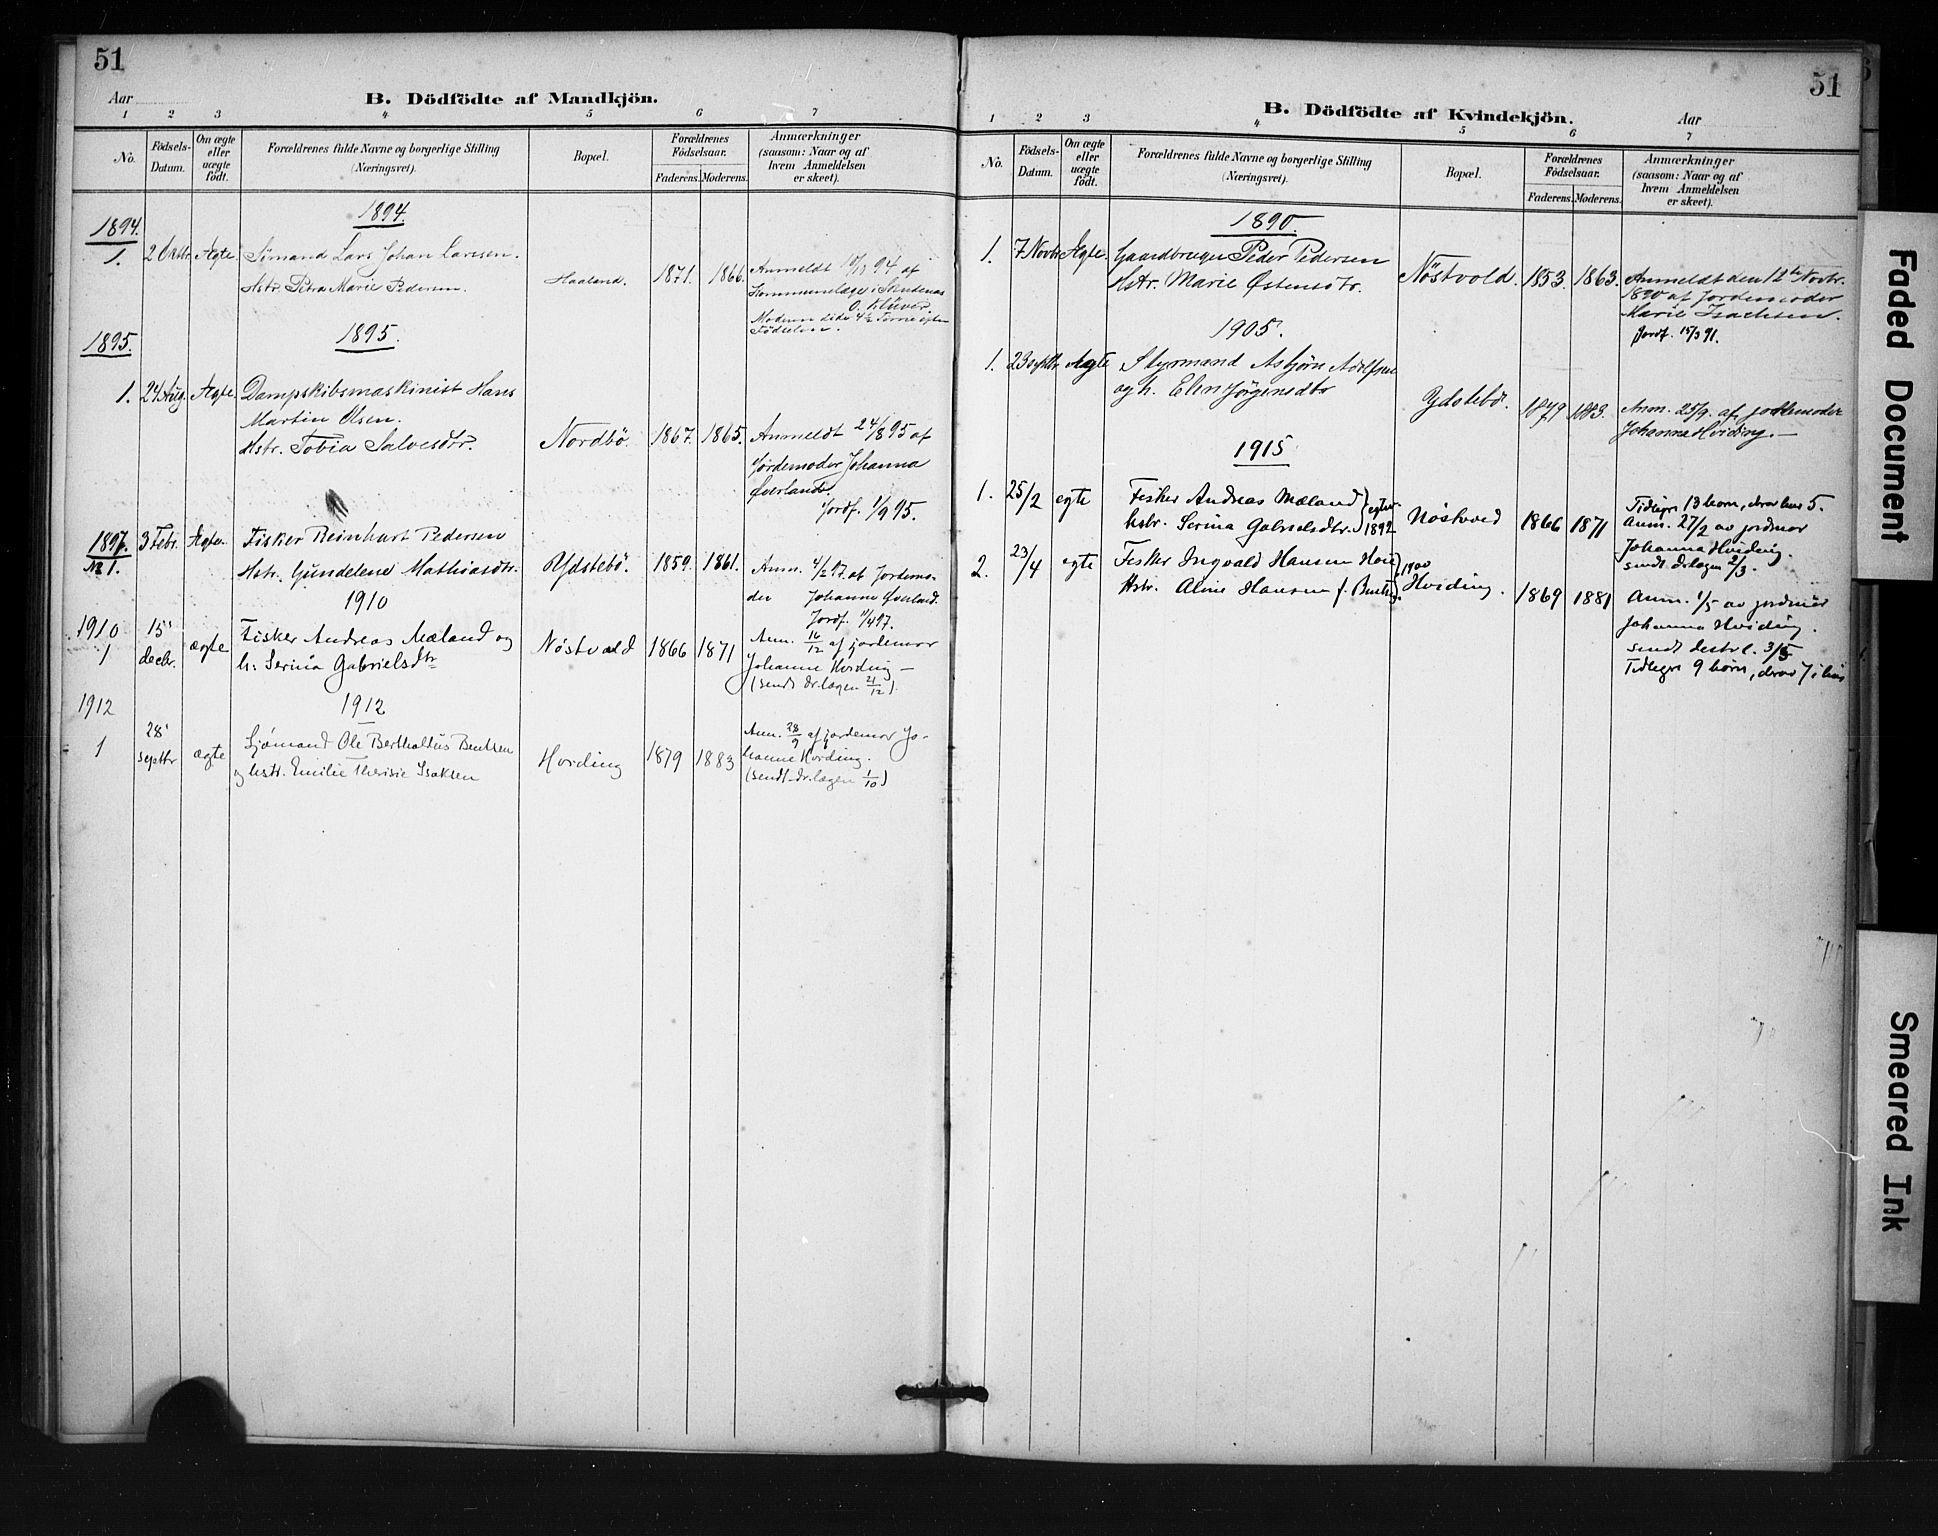 51
Aar
B. Dödfödte af Mandkjön.
1 2 3 4 5 6 7
No.
Födsels-Datum.
Om ægte eller uægte födt.
Forældrenes fulde Navne og borgerlige Stilling
(Næringsvei).
Bopæl.
Forældrenes Födselsaar.
Faderens. Moderens.
Anmærkninger
(saasom: Naar og af
hvem Anmeldelsen
er skeet).
1894. 1894.
1. 2 Ægte Sømand Lars Johan Larssen.
Hstr. Petra Marie Pedersen. Haaland. 1871. 1866. Anmeldt 94 af
Kommunelæge i
Moderen døde 4½ Time efter
Födselen.
1895. 1895.
1. 24 Aug. Ægte. Dampskibsmaskinist Hans
Martin Olsen.
Hstr. Tobia Salvesdtr. Nordbö. 1867. 1865. Anmeldt 24/8 95 af
Jordemoder Johanna
Øverland.
Jordf. 1/9 95.
1897. 3 Febr. Ægte Fisker Reinhart Pedersen
No 1. Hstr. Gundelene Mathiasdtr. Ydstebö. 1859. 1861. Anm. 4/2 97 af Jordemo-
der Johanne Øverland.
Jordf. 11/4 97.
1910
1910 15' Fisker Andreas Mæland og
1 decbr. ægte h. Serina Gabrielsdtr Nöstvold 1866 1871 Anm. 16/12 af jordemor
Johanne Hviding —
(sendt dr.lægen 21/12).
1912 1912
1 28' septbr ægte Sjömand Ole Bertholdus Bentsen
og hstr. Emilie Therisie Isaksen Hviding 1879 1883 Anm. 28/9 af jordemor Jo-
hanne Hviding.
(sendt dr.lægen 1/10)
51
B. Dödfödte af Kvindekjön.
Aar
1 2 3 4 5 6 7
No.
Födsels-Datum.
Om ægte eller uægte födt.
Forældrenes fulde Navne og borgerlige Stilling
(Næringsvei).
Bopæl.
Forældrenes Födselsaar.
Faderens. Moderens.
Anmærkninger
(saasom: Naar og af
hvem Anmeldelsen
er skeet).
1890.
1. 7 Novbr. Ægte. Gaardbruger Peder Pedersen
Hstr. Marie Østensdtr. Nöstvold. 1853. 1863. Anmeldt den 12te Novbr.
1890 af Jordemoder
Marie Isachsen.
Jordf. 15/3 91.
1905.
1. 23 septbr Ægte Styrmand Asbjörn Adolfsen
og h. Elen Jörgensdtr Ydstebö. 1879 1883. Anm. 25/9. af jordemoder
Johanna Hviding. —
1915
1. 25/2 egte Fisker Andreas Mæland
hstr. Serina Gabrielsdtr. 1892 Nöstvold 1866 1871 Tidligere 13 born, derav leve 5.
Anm. 27/2 av jordmor
Johanna Hviding.
sendt dr.lægen 2/3.
2. 23/4 egte Fisker Ingvald Hansen
Hstr. Aline Hansen f. 1900 Hviding. 1869 1881 Anm. 1/5 av jordmor
Johanna Hviding.
sendt distr.l. 3/5
Tidligere 9 børn, derav 7 i live
Faded Document
Smeared Ink